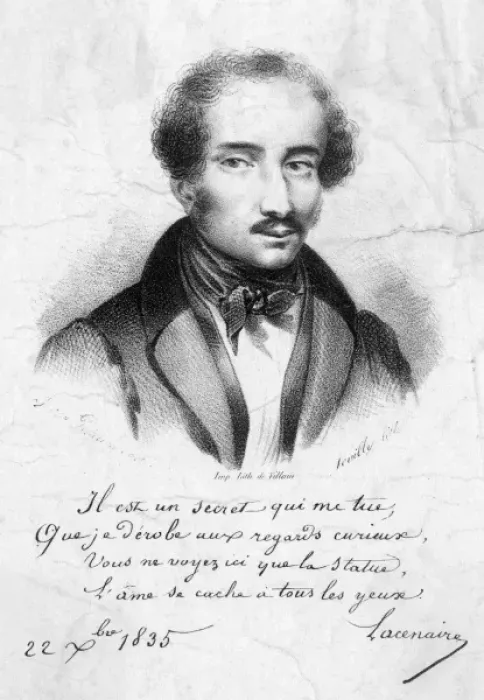 Imp. Lith. de Villain
Il est un secret qui me tue,
Que je dérobe aux regards curieux,
Vous ne voyez ici que la statue,
L'âme se cache à tous les yeux.
22 Xbre 1835
Lacenaire